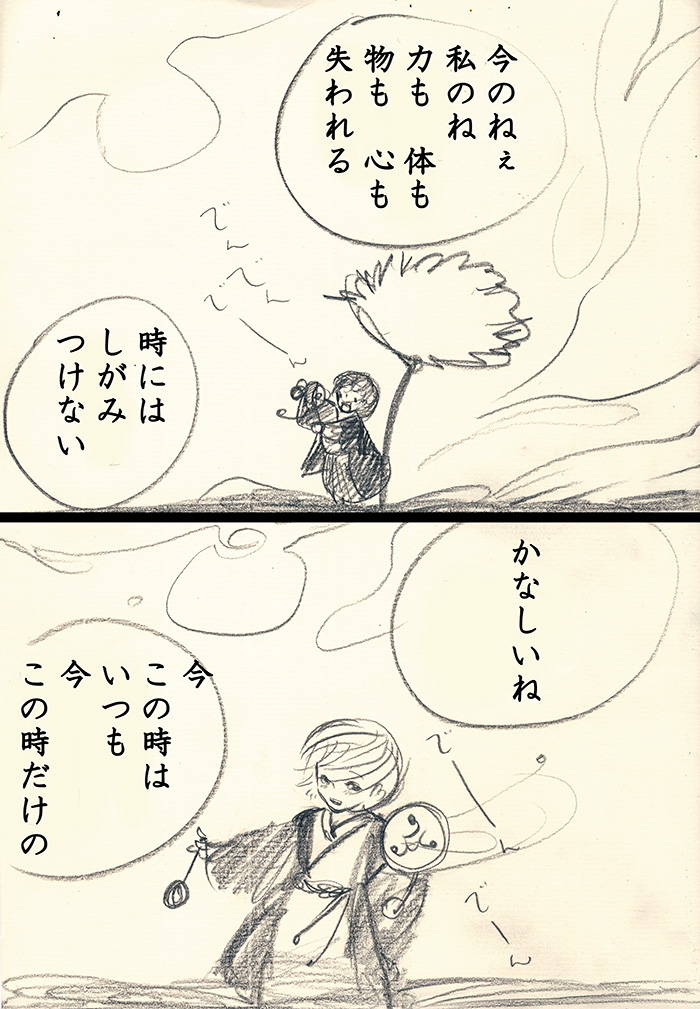 今のねぇ
私のね
力も 体も
物も 心も
失われる
でんでん
でーん
時には
しがみ
つけない
かなしいね
でーん
でーん
今
この時は
いつも
今
この時だけの